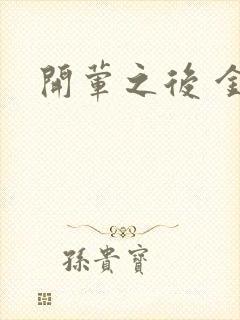 開葷之後金
孫貴寶